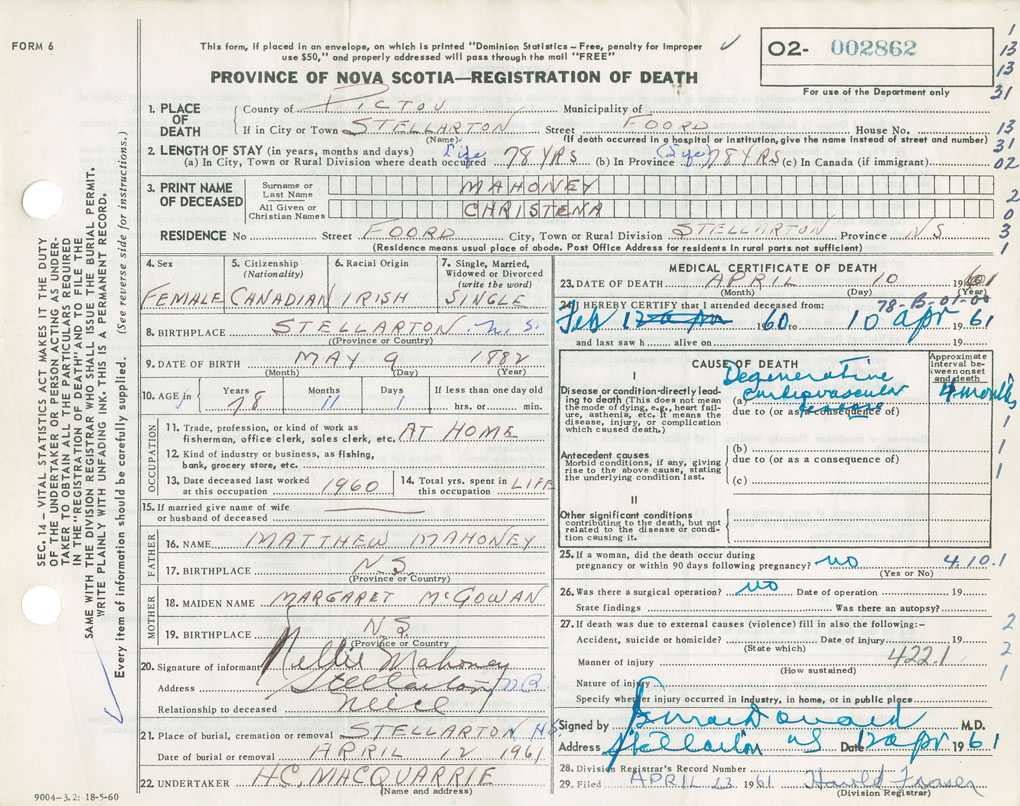 FORM 6
This form, if placed in an envelope, on which is printed "Dominion Statistics – Free, penalty for improper
use $50," and properly addressed will pass through the mail "FREE"
PROVINCE OF NOVA SCOTIA—REGISTRATION OF DEATH
O2- 002862
For use of the Department only
1
13
13
31
13
31
02
2
0
3
1
1. PLACE OF DEATH
County of PICTOU Municipality of
If in City or Town STELLARTON Street FOORD House No.
(Name) (If death occurred in a hospital or institution, give the name instead of street and number)
2. LENGTH OF STAY (in years, months and days)
(a) In City, Town or Rural Division where death occurred Life 78 YRS (b) In Province (Life) 78 YRS (c) In Canada (if immigrant)
3. PRINT NAME OF DECEASED
Surname or Last Name MAHONEY
All Given or Christian Names CHRISTENA
RESIDENCE No Street FOORD City, Town or Rural Division STELLARTON Province NS
(Residence means usual place of abode. Post Office Address for residents in rural parts not sufficient)
4. Sex
FEMALE
5. Citizenship (Nationality)
CANADIAN
6. Racial Origin
IRISH
7. Single, Married, Widowed or Divorced (write the word)
SINGLE
8. BIRTHPLACE STELLARTON N.S.
(Province or Country)
9. DATE OF BIRTH MAY 9 1882
(Month) (Day) (Year)
10. AGE in Years 78 Months 11 Days 1 If less than one day old hrs. or min.
OCCUPATION
11. Trade, profession, or kind of work as
fisherman, office clerk, sales clerk, etc. AT HOME
12. Kind of industry or business, as fishing,
bank, grocery store, etc.
13. Date deceased last worked at this occupation 1960
14. Total yrs. spent in this occupation LIFE
15. If married give name of wife
or husband of deceased
FATHER
16. NAME MATTHEW MAHONEY
17. BIRTHPLACE N.S.
(Province or Country)
MOTHER
18. MAIDEN NAME MARGARET McGOWAN
19. BIRTHPLACE NS
(Province or Country
20. Signature of informant Nellie Mahoney
Address Stellarton
Relationship to deceased Neice
21. Place of burial, cremation or removal STELLARTON N.S.
Date of burial or removal APRIL 12 1961
22. UNDERTAKER H.C. MACQUARRIE
(Name and address)
MEDICAL CERTIFICATE OF DEATH
23. DATE OF DEATH APRIL 10 1961
(Month) (Day) (Year)
24. I HEREBY CERTIFY that I attended deceased from:
78-B-01-00
Feb 1960 to 10 apr 1961
and last saw h alive on 19
CAUSE OF DEATH
Approximate interval between onset and death
I
Disease or condition directly leading to death (This does not mean the mode of dying, e.g., heart failure, asthenia, etc. It means the disease, injury, or complication which caused death.)
(a) Degenerative Cardiovascular
4 months
due to (or as a consequence of)
1
1
1
Antecedent causes
Morbid conditions, if any, giving rise to the above cause, stating the underlying condition last.
(b)
due to (or as a consequence of)
(c)
II
Other significant conditions
contributing to the death, but not related to the disease or condition causing it.
25. If a woman, did the death occur during
pregnancy or within 90 days following pregnancy? no 4.10.1
(Yes or No)
26. Was there a surgical operation? no Date of operation 19
State findings Was there an autopsy?
27. If death was due to external causes (violence) fill in also the following:-
Accident, suicide or homicide? Date of injury 19
(State which)
Manner of injury 422.1
(How sustained)
Nature of injury
Specify whether injury occurred in Industry, in home, or in public place
2
2
1
Signed by M.D.
Address Stellarton NS Date 12 apr 1961
28. Division Registrar's Record Number
29. Filed APRIL 23 1961 Harold Fraser
(Division Registrar)
SEC. 14 – VITAL STATISTICS ACT MAKES IT THE DUTY
OF THE UNDERTAKER OR PERSON ACTING AS UNDER-
TAKER TO OBTAIN ALL THE PARTICULARS REQUIRED
IN THE "REGISTRATION OF DEATH" AND TO FILE THE
SAME WITH THE DIVISION REGISTRAR WHO SHALL ISSUE THE BURIAL PERMIT.
WRITE PLAINLY WITH UNFADING INK. THIS IS A PERMANENT RECORD.
Every item of information should be carefully supplied. (See reverse side for instructions.)
9004-3.2: 18-5-60